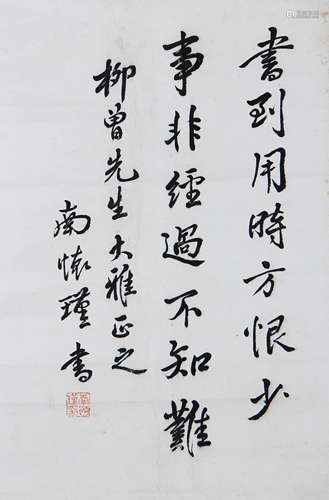 書到用時方恨少
事非經過不知難
柳曾先生大雅正之
南懷瑾書